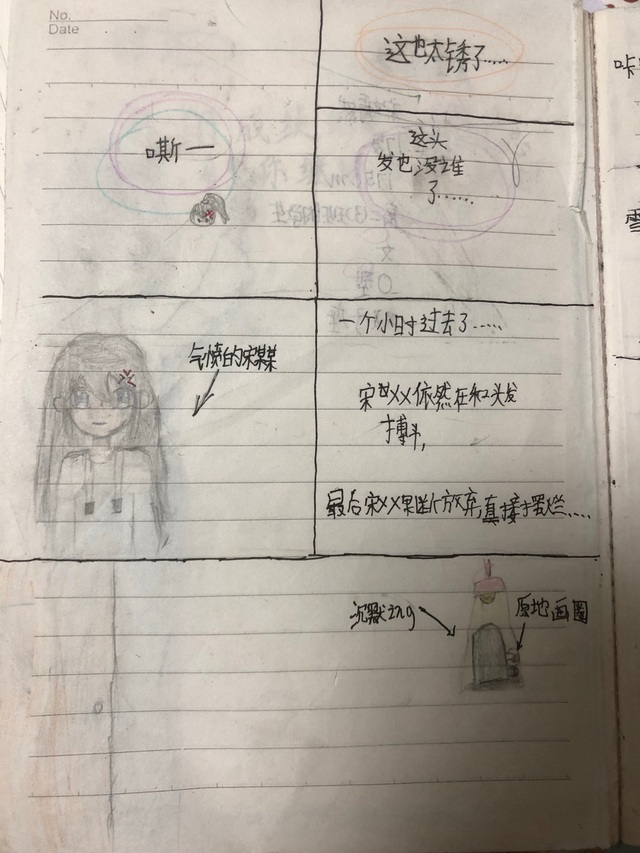 No.
Date
嘶一
这也太锈了……
这头
发也没谁
了……
气愤的宋某某
一个小时过去了……
宋某XX依然在和头发
搏斗,
最后宋XX果断放弃,直接摆烂……
沉默zng
原地画圈
咔
雪